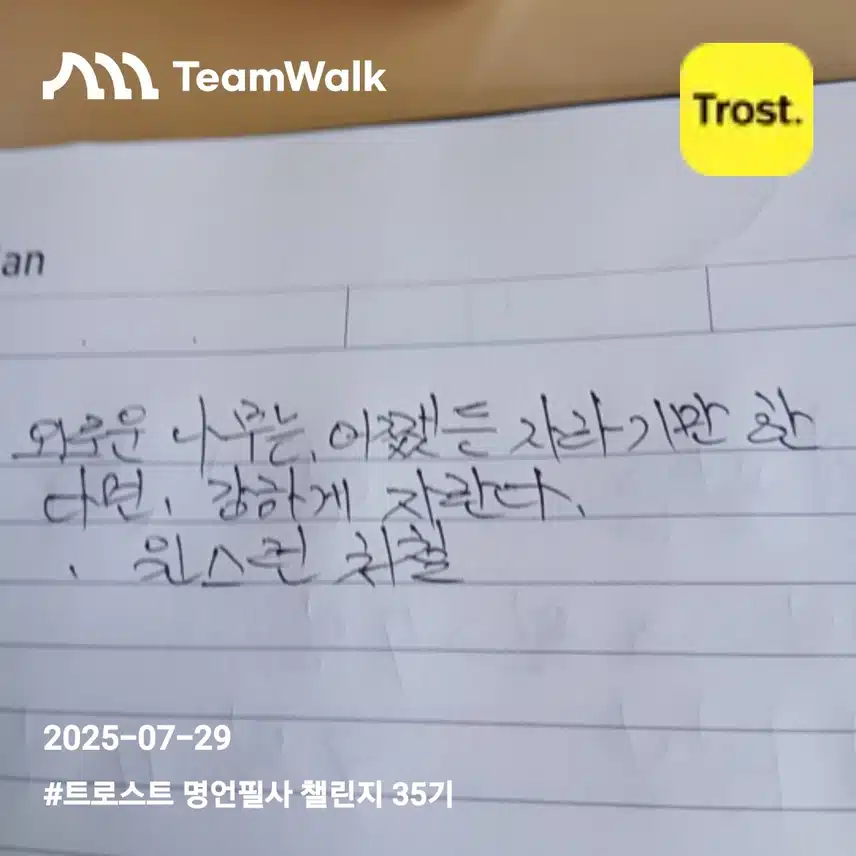 TeamWalk
Trost.
an
외로운 나무는, 어쨌든 자라기만 한
다면, 강하게 자란다.
. 윈스턴 처칠
2025-07-29
#트로스트 명언필사 챌린지 35기